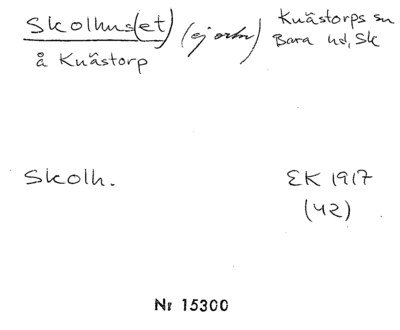 Skolhus(et) (ej ortn) Knästorps sn
å Knästorp Bara hd, Sk
Skolh. EK 1917
(42)
Nr 15300